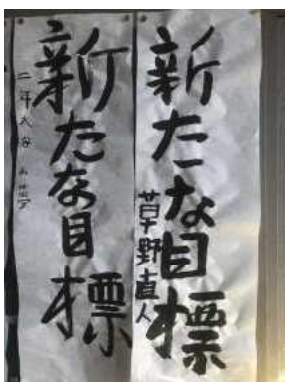 新たな目標
草野直人
新たな目標
二年